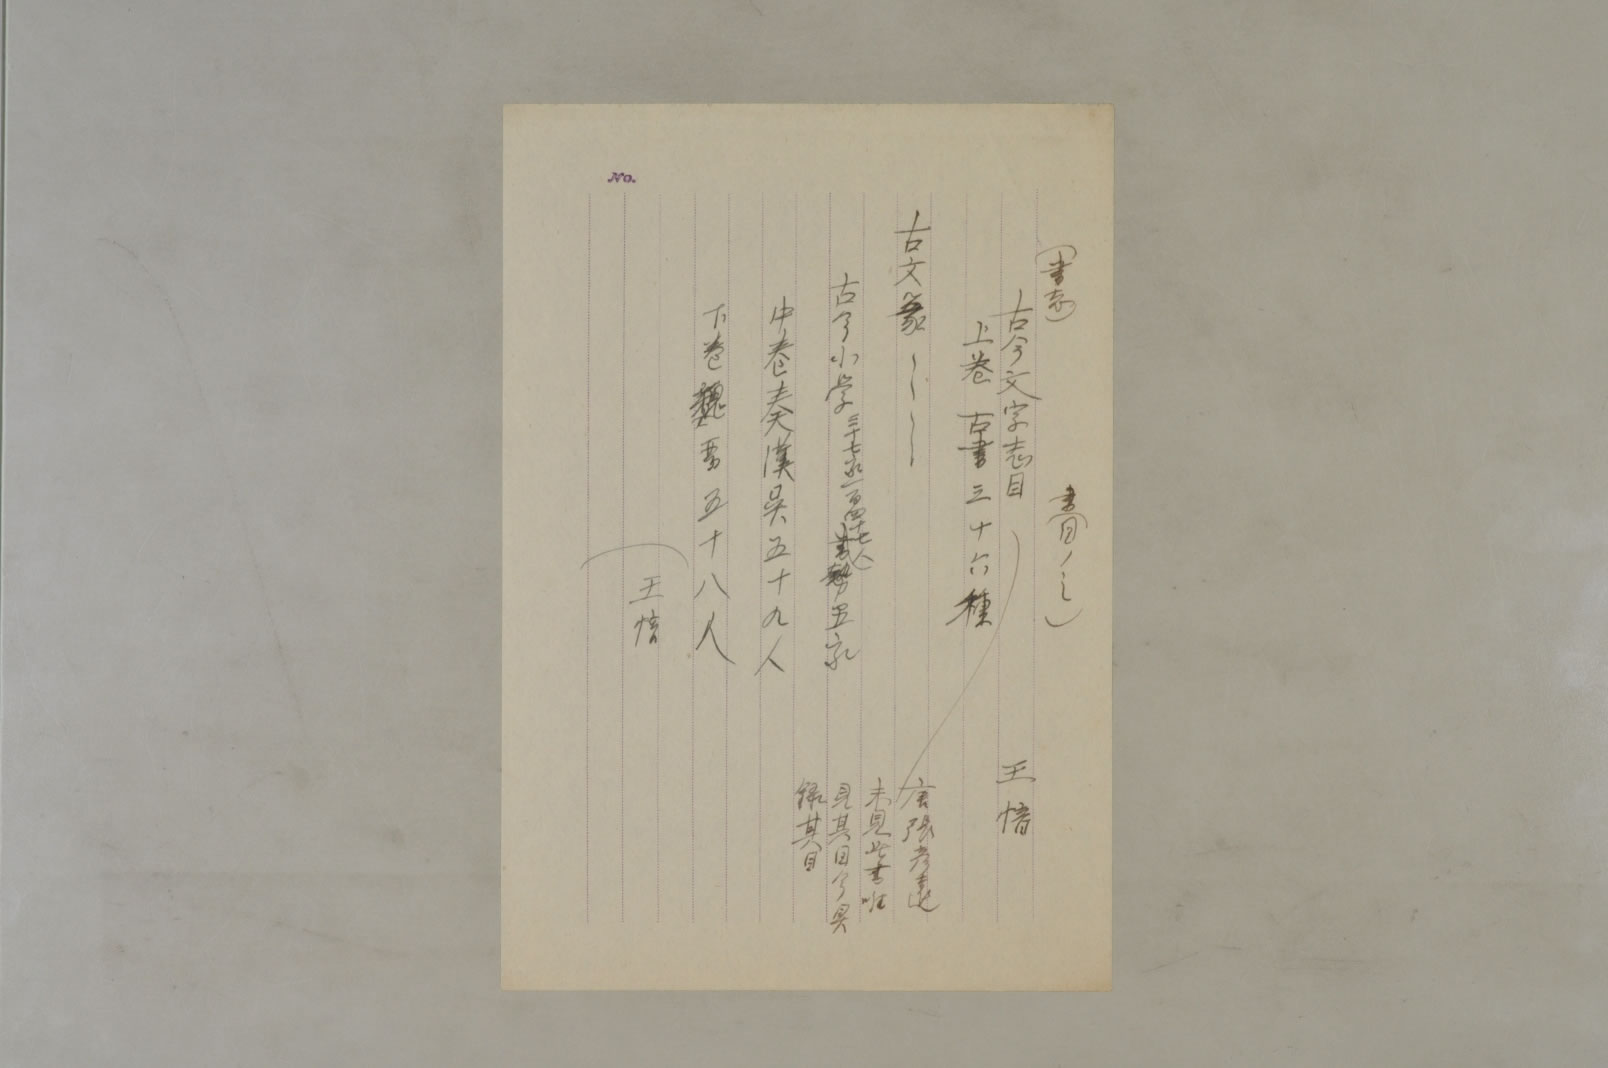 No.
(書志) 書目ノ一)
古今文字志目 王愔
上巻 古書三十六種
唐張彦遠
未見此書唯
見其目今具
録其目
古文篆
古今小学三十七家一百四十七人書勢五家
中巻秦漢吳五十九人
下巻魏晋五十八人
王愔